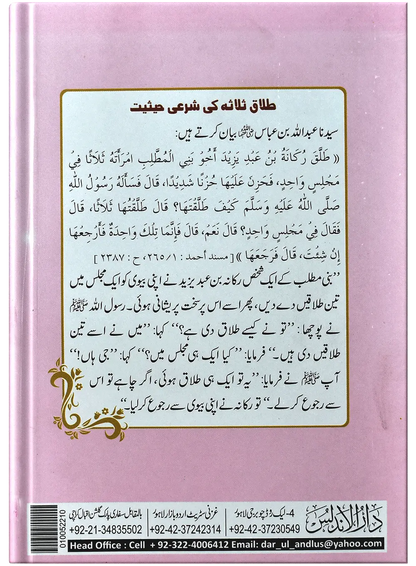 طلاق ثلاثہ کی شرعی حیثیت
سیدنا عبداللہ بن عباس رضی اللہ عنہما بیان کرتے ہیں:
« طَلَّقَ رُكَانَةُ بْنُ عَبْدِ يَزِيْدَ أَخُوْ بَنِي الْمُطَّلِبِ امْرَأَتَهُ ثَلَاثًا فِيْ
مَجْلِسٍ وَاحِدٍ، فَحَزِنَ عَلَيْهَا حُزْنًا شَدِيْدًا، قَالَ فَسَأَلَهُ رَسُوْلُ اللّٰهِ
صَلَّى اللّٰهُ عَلَيْهِ وَسَلَّمَ كَيْفَ طَلَّقْتَهَا؟ قَالَ طَلَّقْتُهَا ثَلَاثًا، قَالَ
فَقَالَ فِيْ مَجْلِسٍ وَاحِدٍ؟ قَالَ نَعَمْ، قَالَ فَإِنَّمَا تِلْكَ وَاحِدَةٌ فَأَرْجِعْهَا
إِنْ شِئْتَ، قَالَ فَرَجَعَهَا » [ مسند أحمد : ٢٦٥/١، ح : ٢٣٨٧ ]
”بنی مطلب کے ایک شخص رکانہ بن عبد یزید نے اپنی بیوی کو ایک مجلس میں
تین طلاقیں دے دیں، پھر اسے اس پر سخت پریشانی ہوئی۔ رسول اللہ ﷺ
نے پوچھا: ”تو نے کیسے طلاق دی ہے؟“ کہا: ”میں نے اسے تین
طلاقیں دی ہیں۔“ فرمایا: ”کیا ایک ہی مجلس میں؟“ کہا: ”جی ہاں!“
آپ ﷺ نے فرمایا: ”یہ تو ایک ہی طلاق ہوئی، اگر چاہے تو اس
سے رجوع کر لے۔“ تو رکانہ نے اپنی بیوی سے رجوع کر لیا۔“
دار الاندلس
4- لیک روڈ چوبرجی لاہور
+92-42-37230549
غزنی سٹریٹ اردو بازار لاہور
+92-42-37242314
بالمقابل سفاری پارک گلشن اقبال کراچی
+92-21-34835502
Head Office : Cell + 92-322-4006412 Email: dar_ul_andlus@yahoo.com
010052210